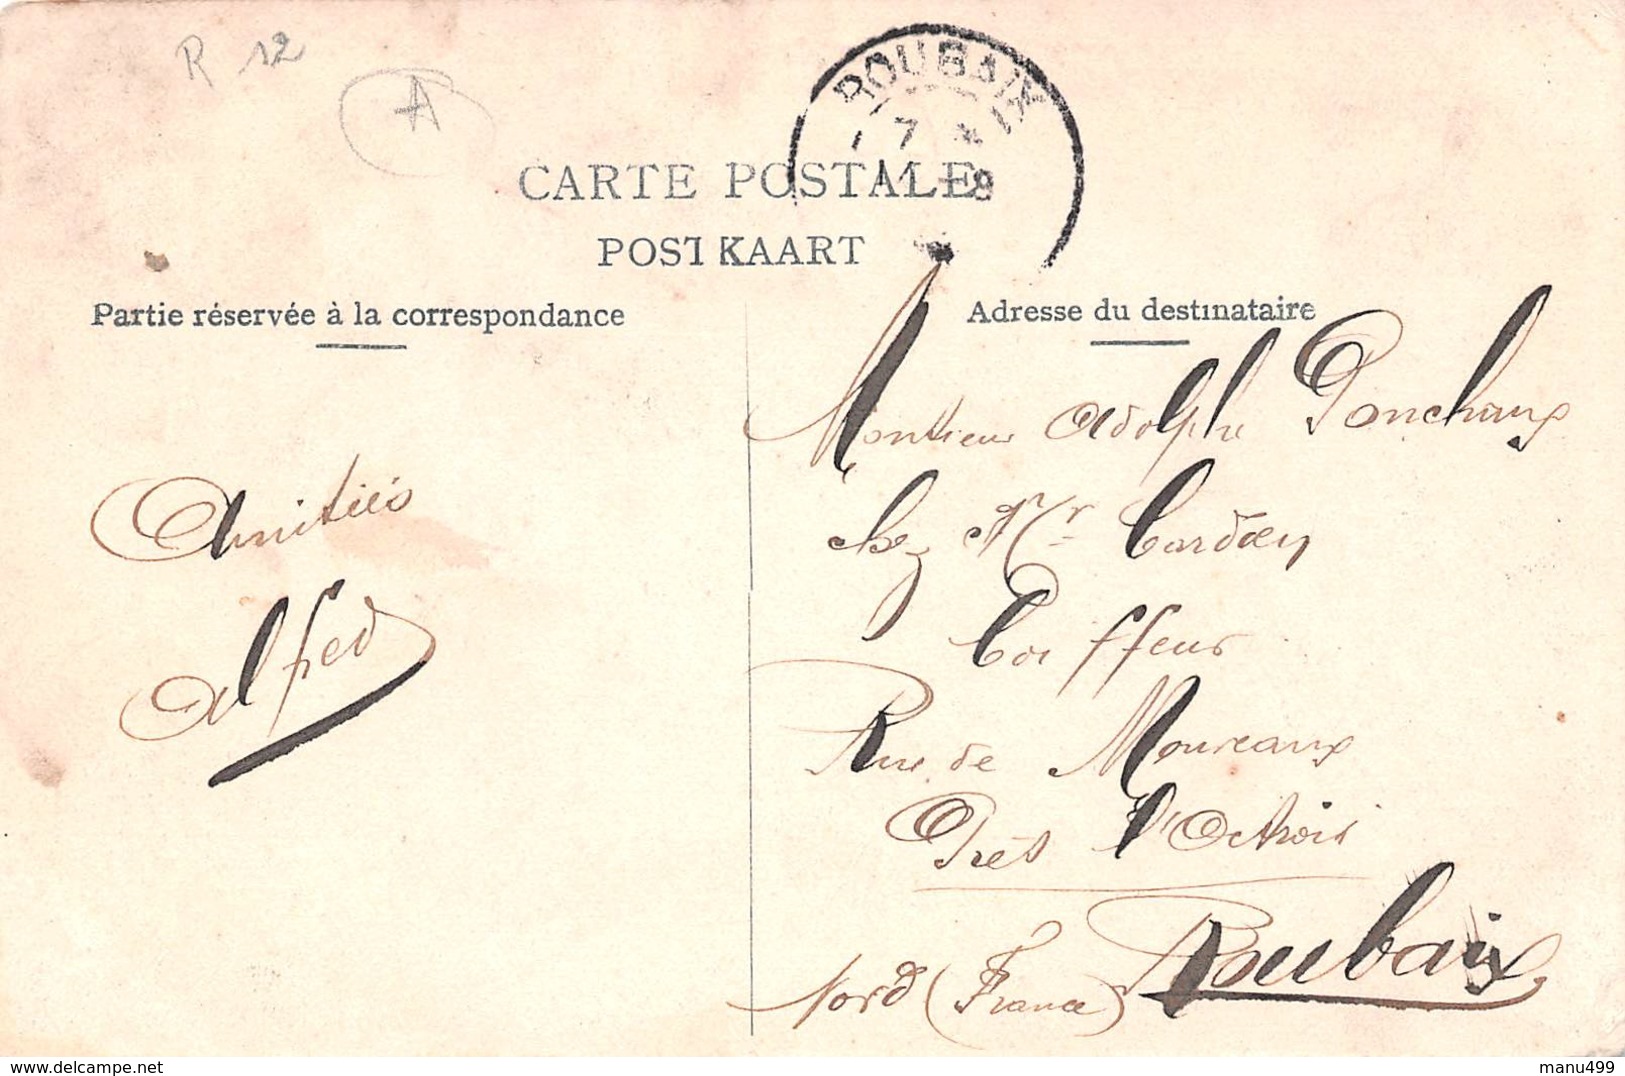 R 12
A
ROUBAIX
7 *
11 - 9
CARTE POSTALE
POSTKAART
Partie réservée à la correspondance
Adresse du destinataire
Amitiés
Alfred
Monsieur Adolphe Ponchaux
chez Mr Cardoen
Coiffeur
Rue de Mouveaux
Près l'Octroi
Roubaix
Nord (France)
manu499
delcampe.net